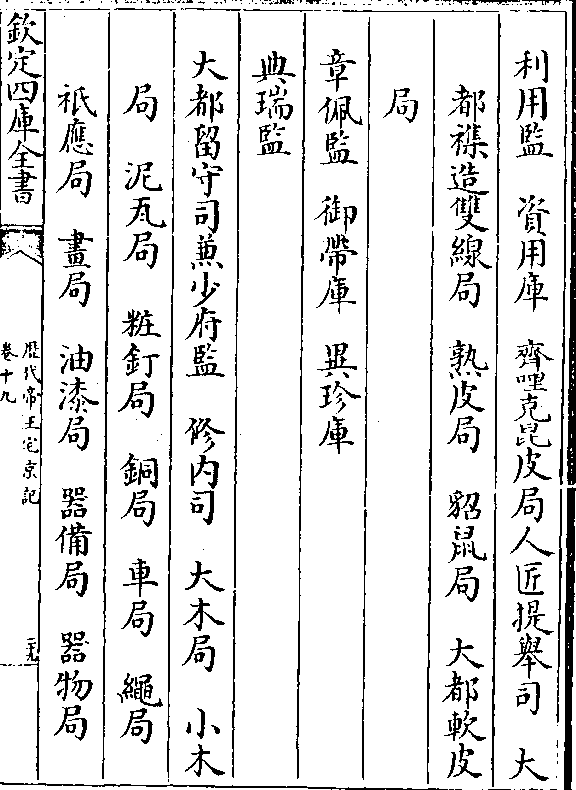 利用監　資用庫　齊哩克昆皮局人匠提舉司　大
都襍造雙線局　熟皮局　貂鼠局　大都軟皮
局
章佩監　御帶庫　異珍庫
典瑞監
大都留守司兼少府監　修内司　大木局　小木
局　泥瓦局　粧釘局　銅局　車局　繩局
祗應局　畫局　油漆局　器備局　器物局
欽定四庫全書
歷代帝王宅京記
卷十九